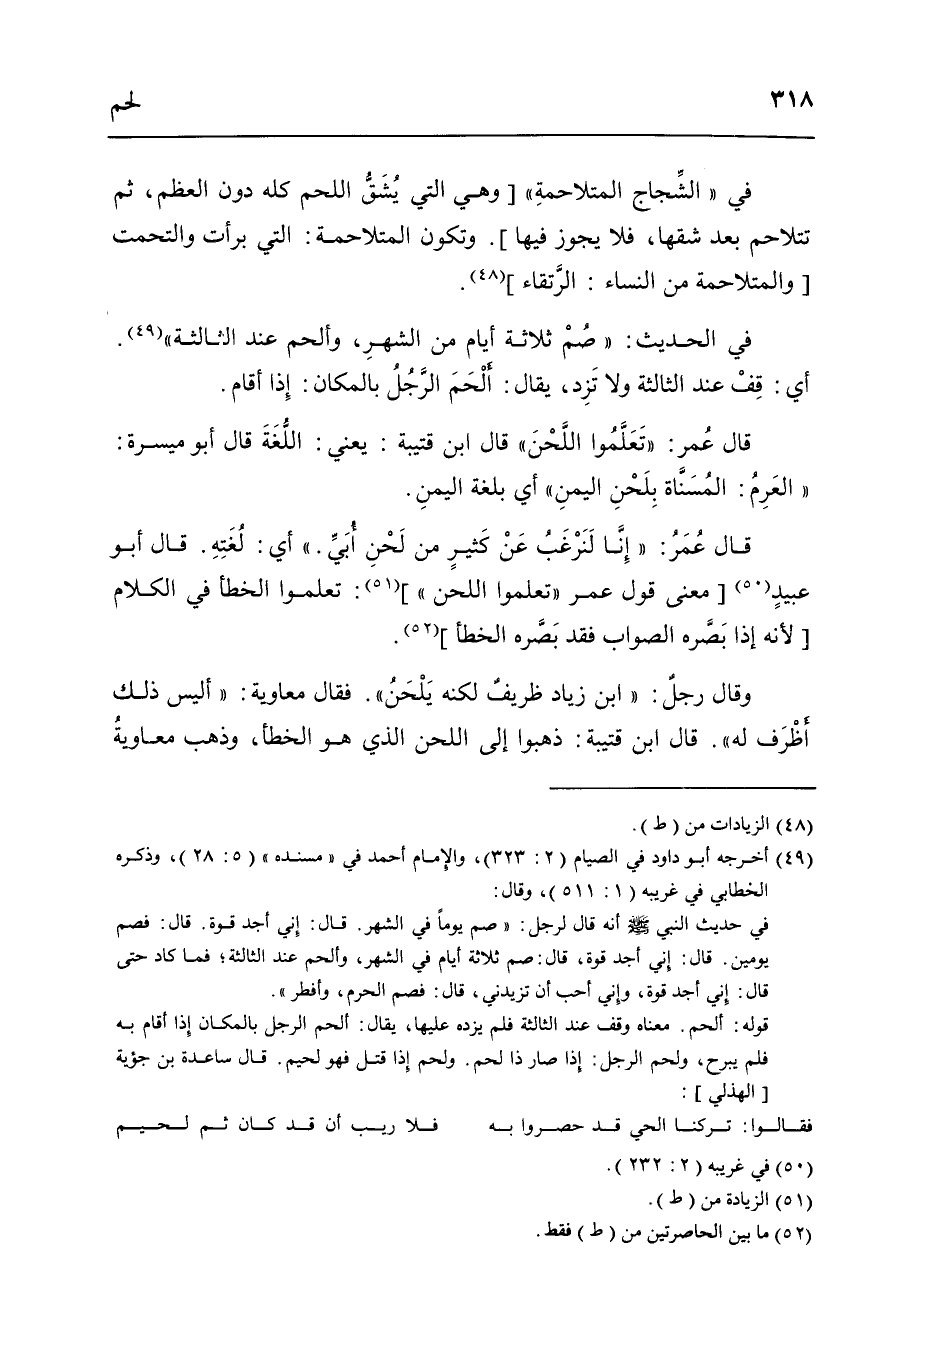 ٣١٨ لحم
في « الشِّجاج المتلاحمةِ» [ وهـي التي يُشَقُّ اللحم كله دون العظم، ثم
تتلاحم بعد شقها، فلا يجوز فيها ]. وتكون المتلاحمـة: التي برأت والتحمت
[ والمتلاحمة من النساء : الرَّتقاء ](٤٨).
في الحـديث: « صُمْ ثلاثـة أيام من الشهـرِ، وألحم عند الثـالثـة»(٤٩).
أي: قِفْ عند الثالثة ولا تَزِد، يقال: أَلْحَمَ الرَّجُلُ بالمكان: إذا أقام.
قال عُمر: «تَعَلَّمُوا اللَّحْنَ» قال ابن قتيبة : يعني: اللُّغَةَ قال أبو ميسـرة:
« العَرِمُ: المُسَنَّاة بِلَحْنِ اليمنِ» أي بلغة اليمنِ.
قـال عُمَرُ: « إنَّـا لَنَرْغَبُ عَنْ كَثيـرٍ من لَحْنِ أُبَيٍّ.» أي: لُغَتِهِ. قـال أبـو
عبيدٍ(٥٠) [ معنى قول عمـر «تعلموا اللحن » ](٥١): تعلمـوا الخطأ في الكـلام
[ لأنه إذا بَصَّره الصواب فقد بَصَّره الخطأ ](٥٢).
وقال رجلٌ: « ابن زياد ظريفٌ لكنه يَلْحَنُ». فقال معاوية: « أليس ذلـك
أَظْرَف له». قال ابن قتيبة: ذهبوا إلى اللحن الذي هـو الخطأ، وذهب معـاويةُ
(٤٨) الزيادات من ( ط ).
(٤٩) أخـرجه أبـو داود في الصيام ( ٢: ٣٢٣)، والإمـام أحمد في « مسنـده » ( ٥: ٢٨ )، وذكـره
الخطابي في غريبه ( ١: ٥١١ )، وقال:
في حديث النبي ﷺ أنه قال لرجل: « صم يوماً في الشهر. قـال: إني أجد قـوة. قال: فصم
يومين. قال: إني أجد قوة، قال: صم ثلاثة أيام في الشهر، وألحم عند الثالثة؛ فمـا كاد حتى
قال: إني أجد قوة، وإني أحب أن تزيدني، قال: فصم الحرم، وأفطر ».
قوله: ألحم. معناه وقف عند الثالثة فلم يزده عليها، يقال: ألحم الرجل بالمكـان إذا أقام بـه
فلم يبرح، ولحم الرجل: إذا صار ذا لحم. ولحم إذا قتـل فهو لحيم. قـال ساعـدة بن جؤية
[ الهذلي ] :
فقـالـوا: تـركنـا الحي قـد حصـروا بـه فـلا ريـب أن قـد كـان ثـم لـحيـم
(٥٠) في غريبه ( ٢: ٢٣٢ ).
(٥١) الزيادة من ( ط ).
(٥٢) ما بين الحاصرتين من ( ط ) فقط.